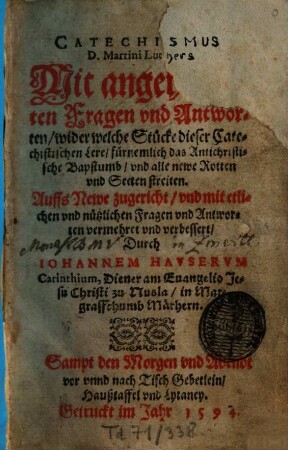 CATECHISMUS
D. Martini Luthers
Mit angef,
ten Fragen vnd Antwor-
ten/wider welche Stücke dieser Cate-
chistischen Lere/ fürnemlich das Antichristi-
sche Bapstumb/ vnd alle newe Rotten
vnd Secten streiten.
Auffs Newe zugericht/ vnd mit etli-
chen vnd nützlichen Fragen vnd Antwor-
ten vermehret vnd verbessert/
Durch
IOHANNEM HAVSERVM
Carinthium, Diener am Euangelio Je-
su Christi zu Musla/ in Mar-
graffthumb Mährern.
Sampt den Morgen vnd Abendt
vor vnnd nach Tisch Gebetlein/
Haußtaffel vnd Lytaney.
Getruckt im Jahr 1594
Td 71/338.